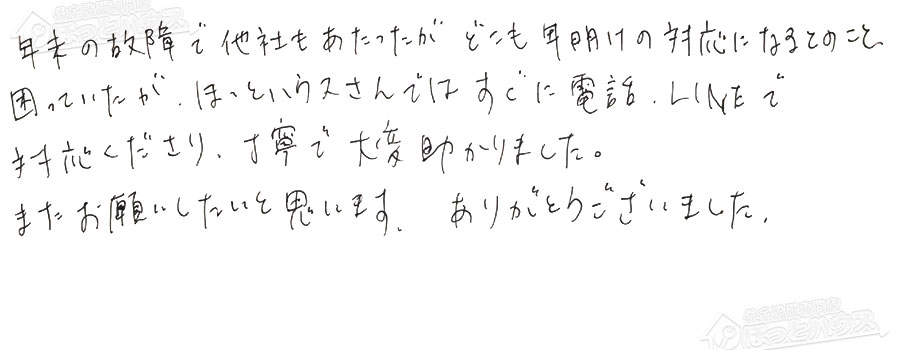 年末の故障で他社もあたったが どこも年明けの対応になるとのこと、
困っていたが、ほっとハウスさんではすぐに電話、LINEで
対応くださり、丁寧で大変助かりました。
またお願いしたいと思います。 ありがとうございました。
住宅設備専門店
ほっとハウス